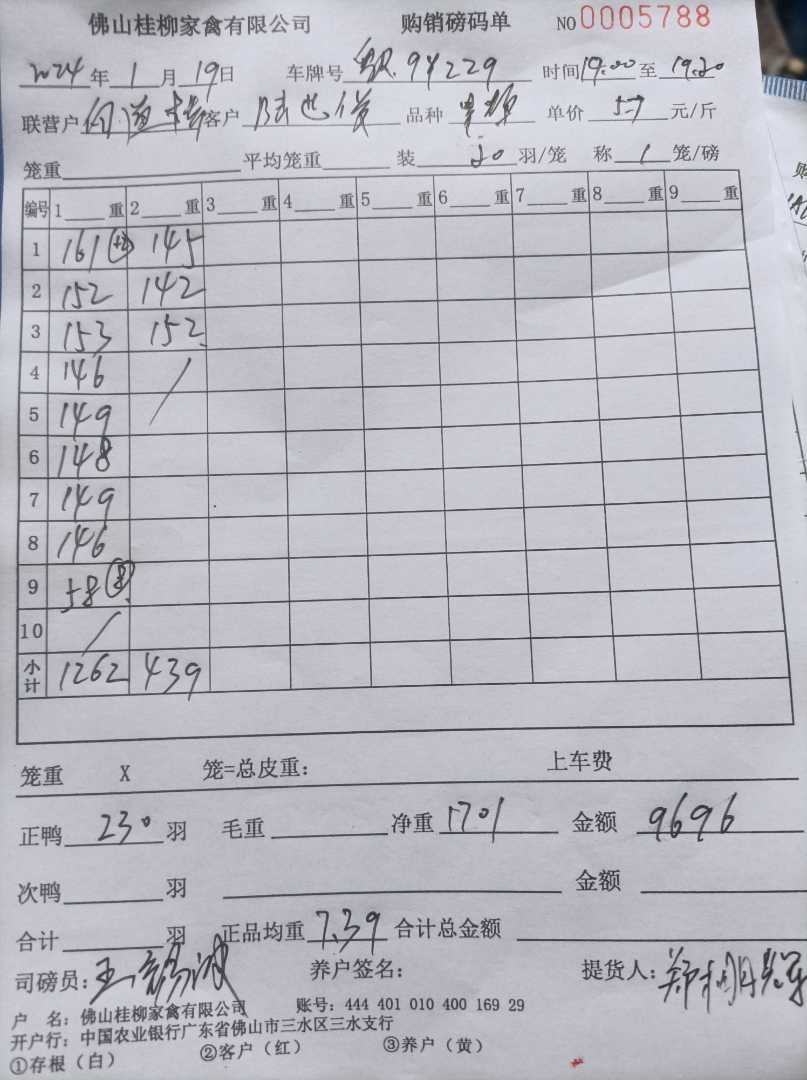 佛山桂柳家禽有限公司 购销磅码单 NO 0005788
2024年1月19日 车牌号 94229 时间19:00至19:20
联营户 客户 陆 品种 单价 5.7 元/斤
笼重 平均笼重 装 20 羽/笼 称 1 笼/磅
编号 1 重 2 重 3 重 4 重 5 重 6 重 7 重 8 重 9 重
1 161 145
2 152 142
3 153 152
4 146 /
5 149
6 148
7 149
8 146
9 58
10 /
小计 1262 439
笼重 X 笼=总皮重: 上车费
正鸭 230 羽 毛重 净重 1701 金额 9696
次鸭 羽 金额
合计 羽 正品均重 7.39 合计总金额
司磅员: 养户签名: 提货人: 郑
户 名: 佛山桂柳家禽有限公司 账号: 444 401 010 400 169 29
开户行: 中国农业银行广东省佛山市三水区三水支行
①存根（白） ②客户（红） ③养户（黄）